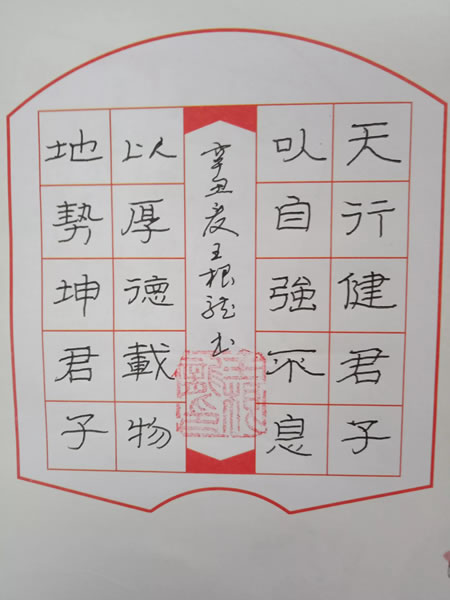 天行健君子
以自強不息
地勢坤君子
以厚德載物
辛丑夏王根龍书